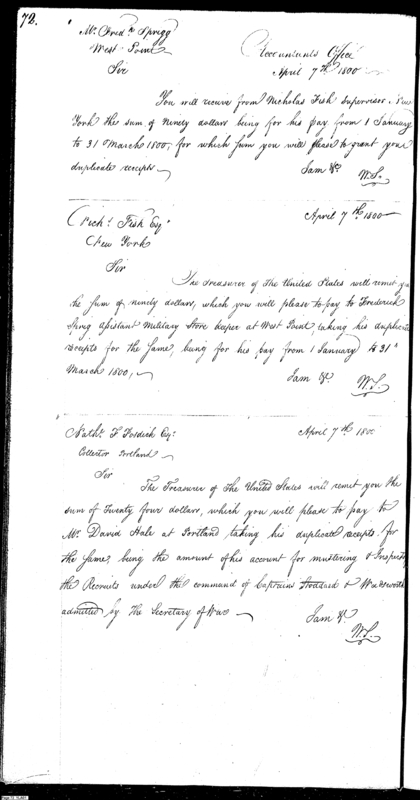 72.
Mr. Fredk. Sprigg
West Point
Accountants Office
April 7th 1800
Sir
You will receive from Nicholas Fish Supervisor New
York the sum of Ninety dollars being for his pay from 1 January
to 31 March 1800, for which sum you will please to grant your
duplicate receipts
I am &c.
W.S.
April 7th 1800
Nichs. Fish Esqr.
New York
Sir
The Treasurer of the United States will remit you
the sum of ninety dollars, which you will please to pay to Frederick
Sprig assistant Military Store keeper at West Point taking his duplicate
receipts for the same, being for his pay from 1 January to 31
March 1800,
I am &c.
W.S.
Nathl. F Fosdick Esqr.
April 7th 1800
Collector Portland
Sir
The Treasurer of the United States will remit you the
sum of Twenty four dollars, which you will please to pay to
Mr. David Hale at Portland taking his duplicate receipts for
the same, being the amount of his account for mustering & Inspecting
the Recruits under the command of Captains Stoddard & Wadsworth
admitted by the Secretary of War
I am &c.
W.S.